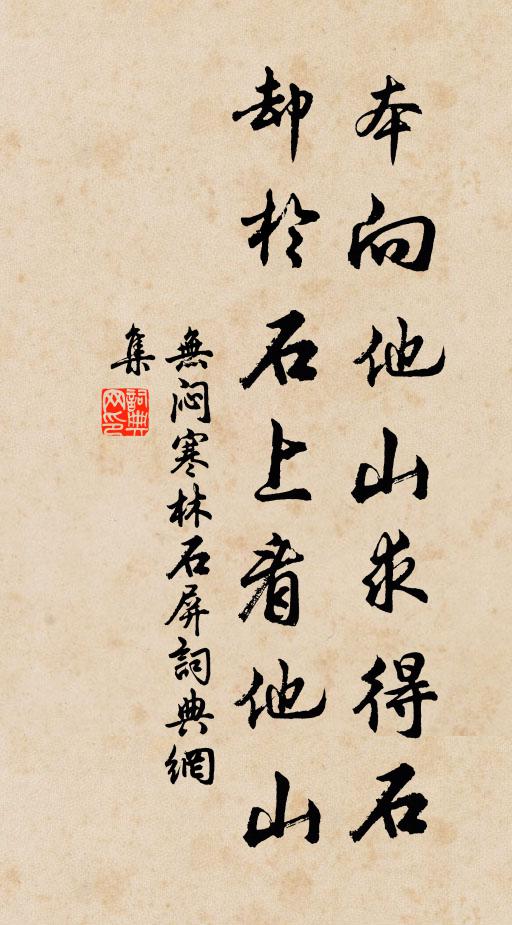 本向他山求得石
却於石上看他山
無悶寒林石屏詞典網
集
詞典
网印